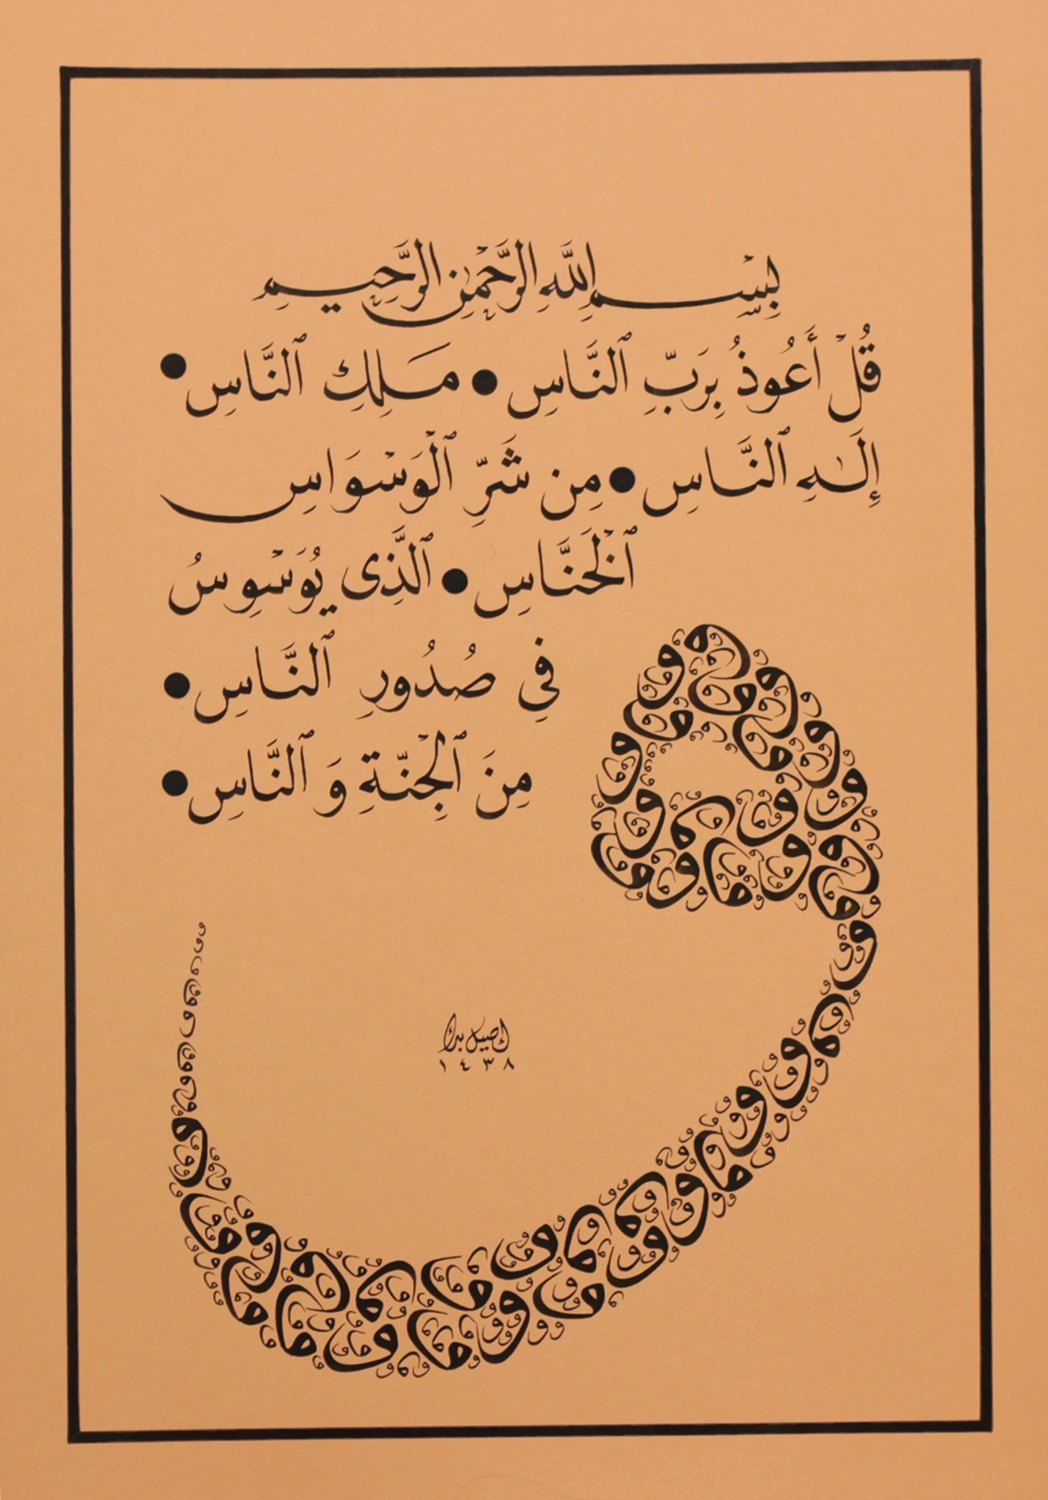 بِسْمِ اللَّهِ الرَّحْمٰنِ الرَّحِيمِ
قُلْ أَعُوذُ بِرَبِّ ٱلنَّاسِ ● مَلِكِ ٱلنَّاسِ ●
إِلَٰهِ ٱلنَّاسِ ● مِن شَرِّ ٱلْوَسْوَاسِ
ٱلْخَنَّاسِ ● ٱلَّذِى يُوَسْوِسُ
فِي صُدُورِ ٱلنَّاسِ ●
مِنَ ٱلْجِنَّةِ وَ ٱلنَّاسِ ●
١٤٣٨